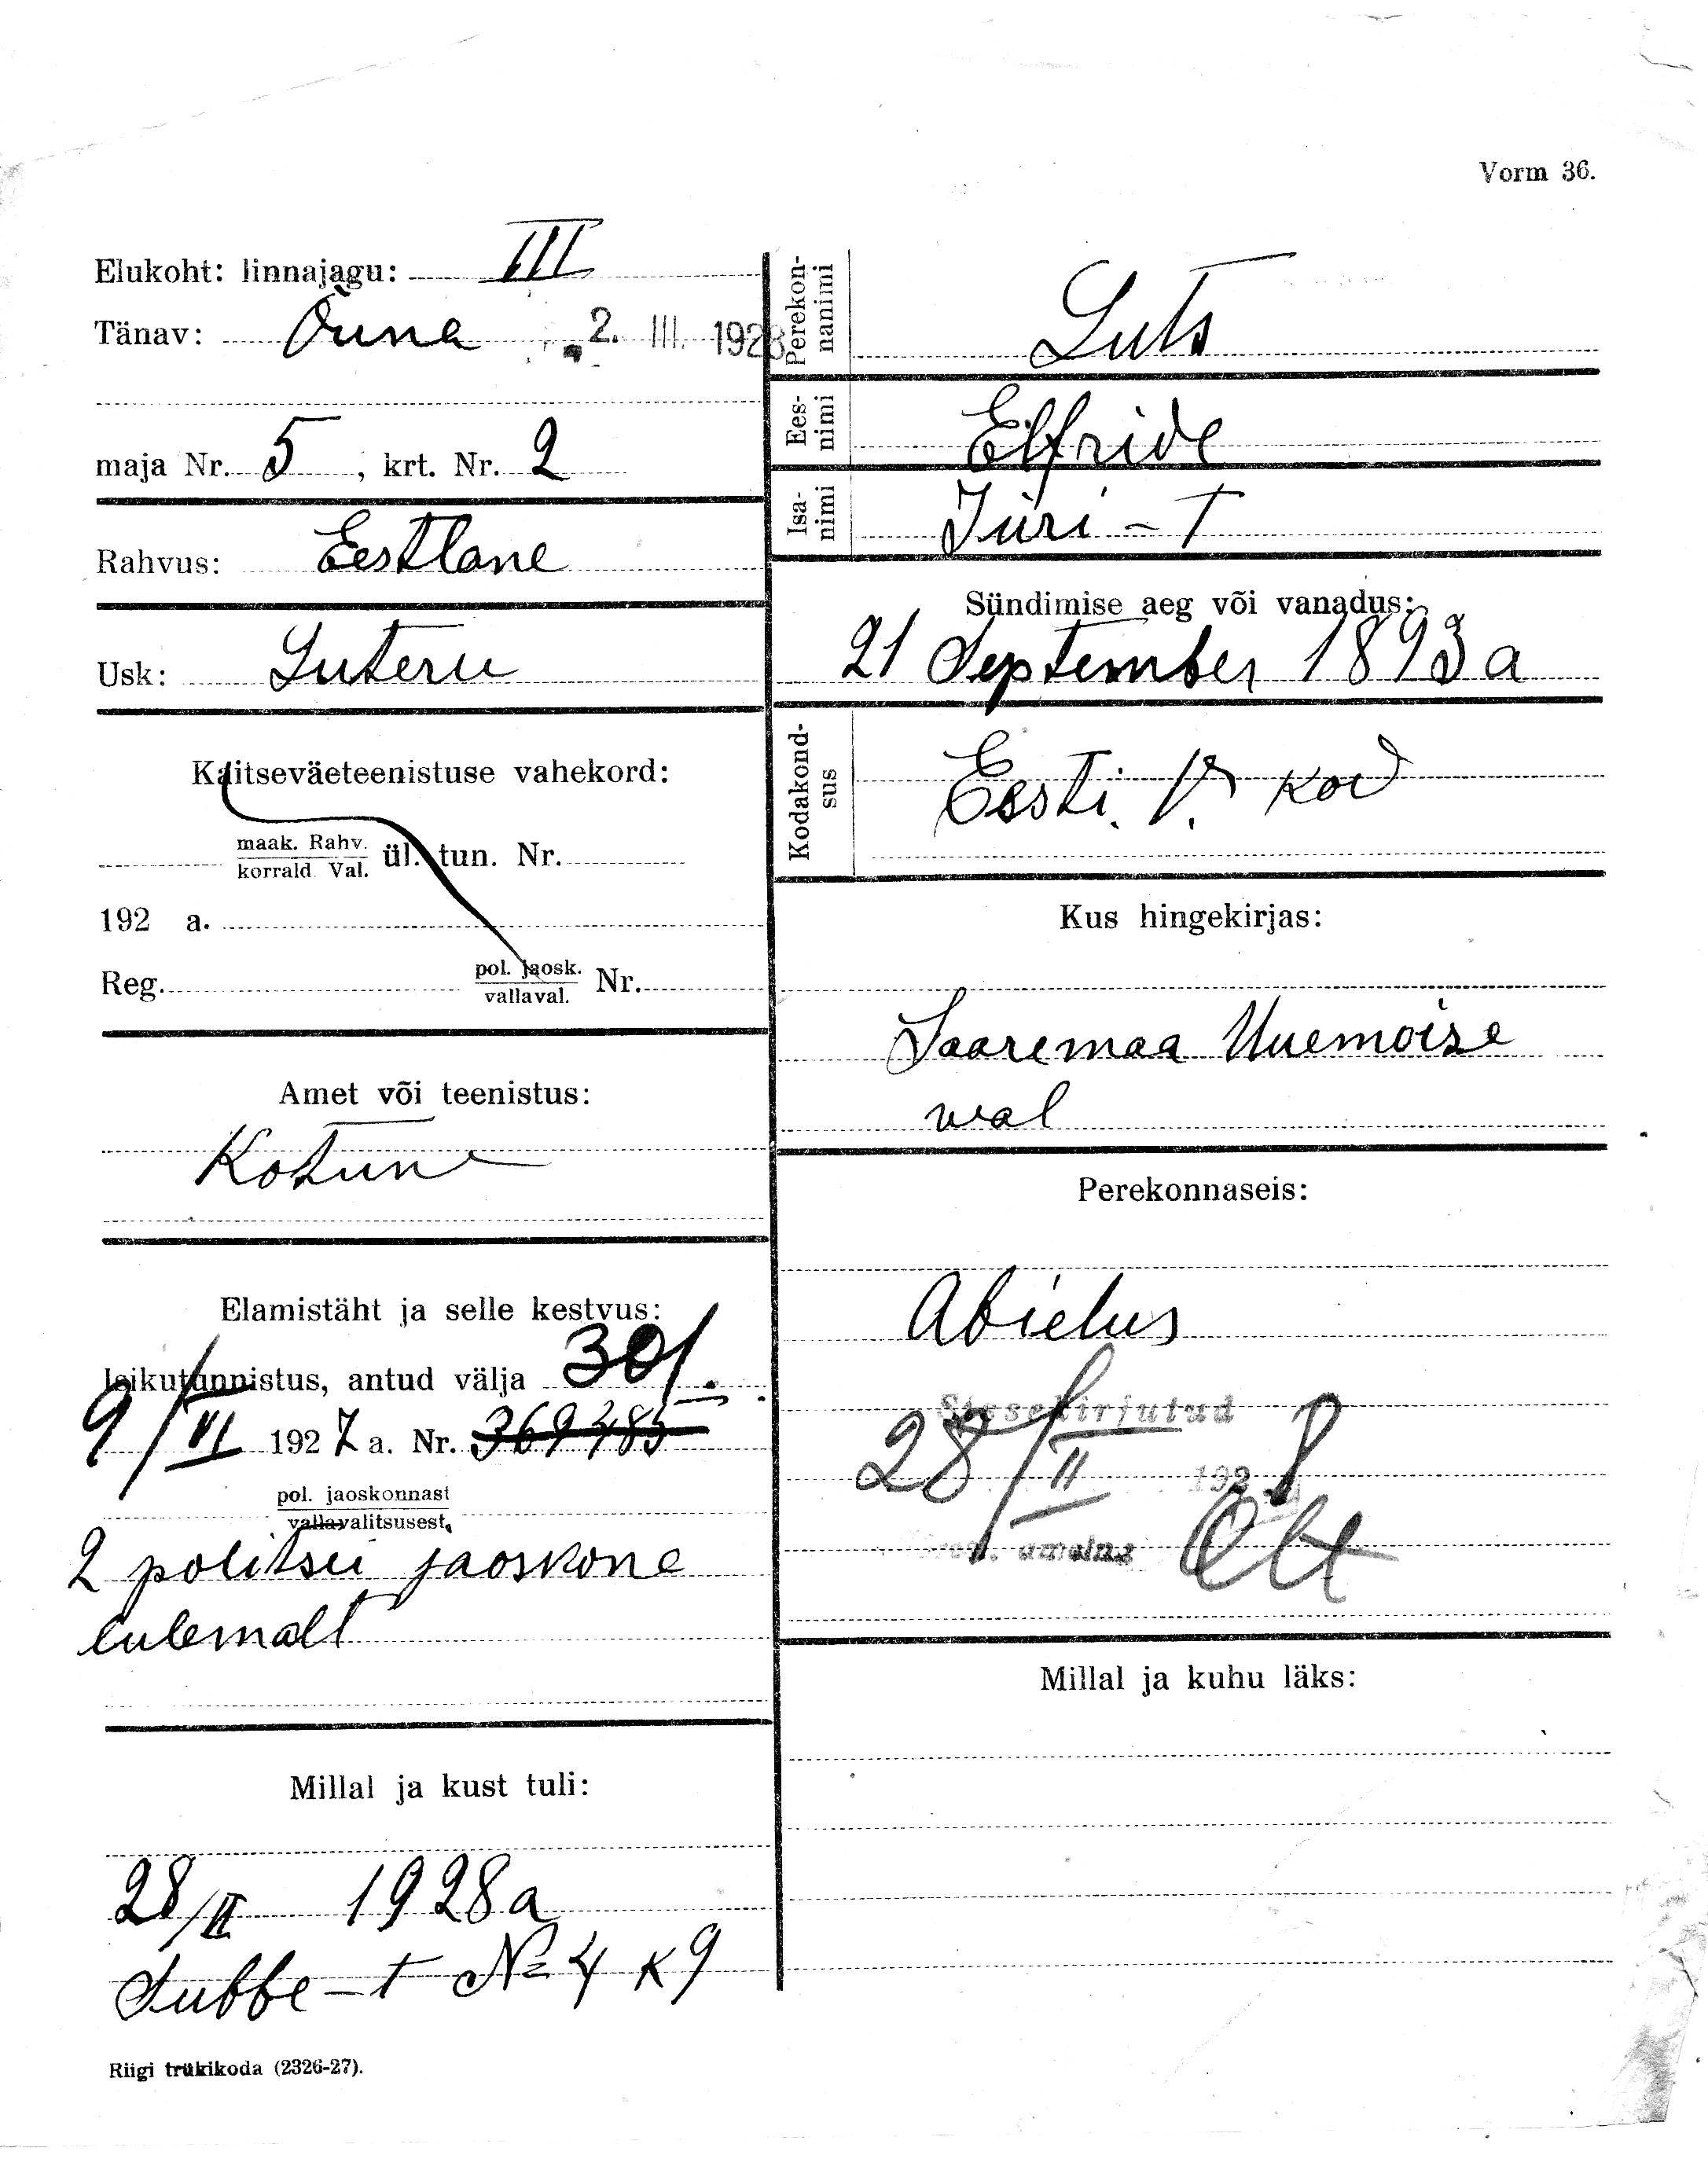 Vorm 36.
Elukoht: linnajagu: III
Tänav: Õuna 2. III. 1928
maja Nr. 5, krt. Nr. 2
Rahvus: Eestlane
Usk: Luteru
Kaitseväeteenistuse vahekord:
maak. Rahv.
korrald. Val. ül. tun. Nr.
192 a.
Reg. pol. jaosk. Nr.
vallaval.
Amet või teenistus:
Kotune
Elamistäht ja selle kestvus:
Isikutunnistus, antud välja 301.
9/VI 1927 a. Nr. 369485
pol. jaoskonnast
vallavalitsusest,
2 politsei jaoskone
ülemalt
Millal ja kust tuli:
28/II 1928 a
Lubbe-t № 4 K 9
Riigi trükikoda (2326-27).
Perekon-
nanimi Luts
Ees-
nimi Elfride
Isa-
nimi Jüri-t
Sündimise aeg või vanadus:
21 September 1893 a
Kodakond-
sus Eesti. V. kod
Kus hingekirjas:
Saaremaa Uuemoise
wal
Perekonnaseis:
Abielus
Sissekirjutud
28/II 1928
ametnz
Millal ja kuhu läks: